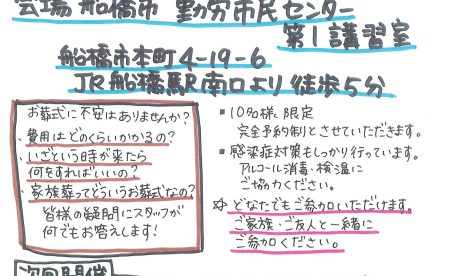 会場 船橋市 勤労市民センター
第1講習室
船橋市本町4-19-6
JR船橋駅南口より徒歩5分
お葬式に不安はありませんか?
・費用はどのくらいかかるの?
・いざという時が来たら
何をすればいいの?
・家族葬ってどういうお葬式なの?
皆様の疑問にスタッフが
何でもお答えします!
▪10名様、限定
完全予約制とさせていただきます。
▪感染症対策もしっかり行っています。
アルコール消毒・検温に
ご協力ください。
☆どなたでもご参加いただけます。
ご家族・ご友人と一緒に
ご参加ください。
次回開催